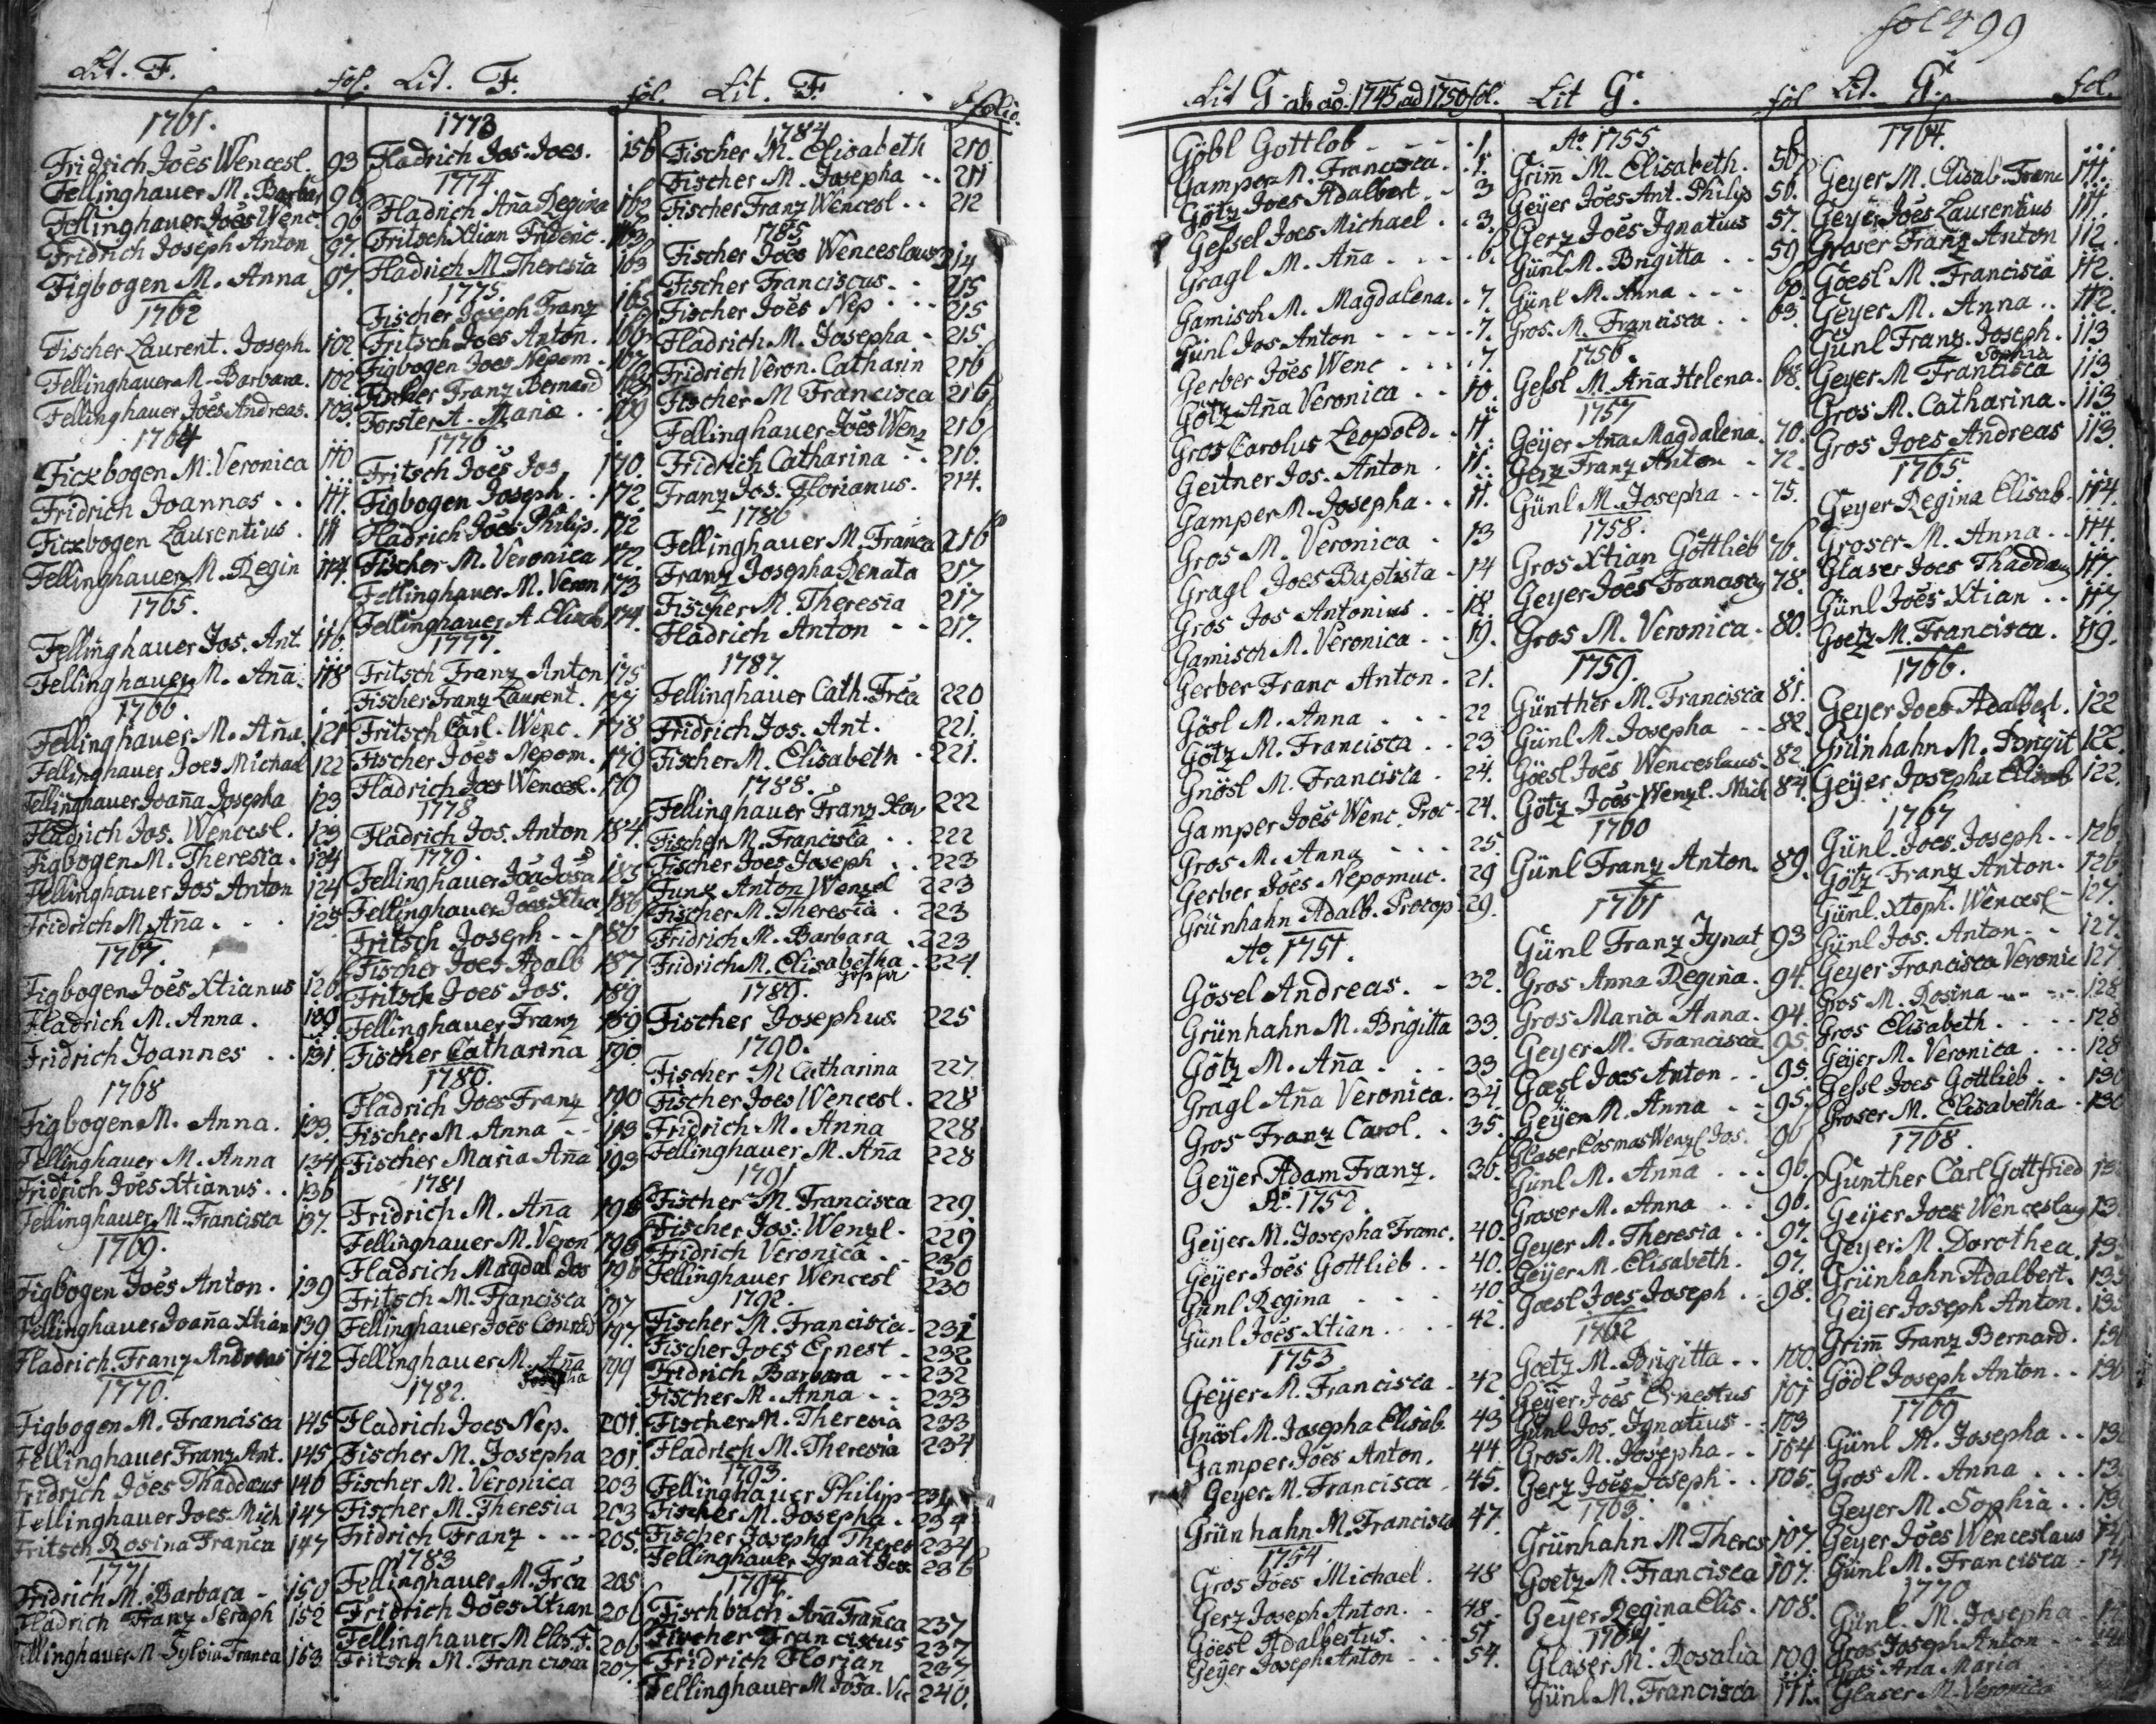 fol 499
Lit. F. fol.
1761.
Fridrich Joēs Wencesl. 93
Fellinghauer M. Barbar 96
Fellinghauer Joēs Wenc. 96
Fridrich Joseph Anton 97.
Figbogen M. Anna 97.
1762
Fischer Laurent. Joseph. 102
Fellinghauer M. Barbara. 102
Fellinghauer Joēs Andreas. 103.
1764
Fickbogen M. Veronica 110
Fridrich Joannes . . 111.
Fickbogen Laurentius . 111
Fellinghauer M. Regin 114.
1765.
Fellinghauer Jos. Ant. 116.
Fellinghauer M. Aña. 118
1766.
Fellinghauer M. Aña. 121
Fellinghauer Joes Michael 122
Fellinghauer Joaña Josepha 123
Hadrich Jos. Wencesl. 123
Figbogen M. Theresia. 124
Fellinghauer Jos Anton 124
Fridrich M. Aña. . . 125
1767.
Figbogen Joēs Xtianus 126
Hadrich M. Anna. 130
Fridrich Joannes . . 131
1768
Figbogen M. Anna. 133.
Fellinghauer M. Anna 134
Fridrich Joēs Xtianus. . 136
Fellinghauer M. Francisca 137.
1769.
Figbogen Joēs Anton. 139
Fellinghauer Joaña Xtian 139.
Hadrich Franz Andreas 142
1770.
Figbogen M. Francisca 145
Fellinghauer Franz Ant. 145
Fridrich Joēs Thaddæus 146
Fellinghauer Joes Mich 147
Fritsch Rosina Franca 147
1771
Fridrich M. Barbara - 150
Hadrich Franz Seraph 152
Fellinghauer M. Sylvia Franca 153
Lit. F. fol.
1773
Hadrich Jos. Joes. 156
1774.
Hadrich Aña Regina 162
Fritsch Xtian Frideric. 163
Hadrich M. Theresia 163
1775.
Fischer Joseph Franz 165
Fritsch Joēs Anton. 166
Figbogen Joes Nepom. 167
Fischer Franz Bernard 168
Forster A. Maria . . 169
1776
Fritsch Joēs Jos 170.
Figbogen Joseph. . 172
Hadrich Joēs Philip. 172
Fischer M. Veronica 172.
Fellinghauer M. Veron 173
Fellinghauer A. Elisab 174.
1777.
Fritsch Franz Anton 175
Fischer Franz Laurent. 177
Fritsch Carl. Wenc. 178
Fischer Joēs Nepom. 179
Hadrich Joes Wencesl. 179
1778.
Hadrich Jos. Anton 184.
1779.
Fellinghauer Joa Josa 185
Fellinghauer Joes Xtia 186
Fritsch Joseph - - 186
Fischer Joes Adalb 187
Fritsch Joes Jos. 189
Fellinghauer Franz 189
Fischer Catharina 190
1780.
Hadrich Joes Franz 190
Fischer M. Anna - - 193
Fischer Maria Aña 193
1781
Fridrich M. Aña 196
Fellinghauer M. Veron 196
Hadrich Magdal Jos 196
Fritsch M. Francisca 197
Fellinghauer Joēs Conrad 197.
Fellinghauer M. Aña 199
1782.
Hadrich Joes Nep. 201.
Fischer M. Josepha 201.
Fischer M. Veronica 203
Fischer M. Theresia 203
Fridrich Franz . . . 205.
1783
Fellinghauer M. Frca 205
Fridrich Joēs Xtian 206
Fellinghauer M Elis F. 206
Fritsch M. Francisca 207.
Lit. F. folio.
1784
Fischer M. Elisabeth 210
Fischer M. Josepha . . 211
Fischer Franz Wencesl . . 212
1785
Fischer Joēs Wenceslaus 214
Fischer Franciscus. . 215
Fischer Joēs Nep . . . 215
Hadrich M. Josepha . 215.
Fridrich Veron. Catharin 216
Fischer M Francisca 216
Fellinghauer Joēs Wenz 216
Fridrich Catharina . . 216.
Franz Jos. Florianus. 214.
1786
Fellinghauer M. Franca 216
Franz Josepha Renata 217
Fischer M. Theresia 217
Hadrich Anton - - 217.
1787.
Fellinghauer Cath. Frca 220
Fridrich Jos. Ant. 221.
Fischer M. Elisabeth . 221.
1788.
Fellinghauer Franz Xav 222
Fischer M. Francisca . . 222
Fischer Joes Joseph . . 223
Funz Anton Wenzel 223
Fischer M. Theresia . 223
Fridrich M. Barbara . 223
Fridrich M. Elisabetha . 224.
1789.
Fischer Josephus 225
1790.
Fischer M Catharina 227
Fischer Joes Wencesl. 228
Fridrich M. Anna 228
Fellinghauer M. Aña 228
1791
Fischer M. Francisca 229
Fischer Jos. Wenzl. 229
Fridrich Veronica . 230
Fellinghauer Wencesl 230
1792.
Fischer M. Francisca. 231
Fischer Joes Ernest - 232
Fridrich Barbara - - 232
Fischer M. Anna - - 233
Fischer M. Theresia 233
Hadrich M. Theresia 234
1793.
Fellinghauer Philip 234
Fischer M. Josepha . 234
Fischer Josepha Theres 234
Fellinghauer Ignat Jos. 236
1794.
Fischbach Aña Franca 237
Fischer Franciscus 237
Fridrich Florian 237
Fellinghauer M Josa. Vic 240.
Lit G. ab aō. 1745 ad 1750 fol.
Göbl Gottlob - - - - 1.
Gamper M. Francisca. . 1.
Götz Joes Adalbert. - 3
Gessel Joes Michael . . 3.
Gragl M. Aña . . . . 6.
Gamisch M. Magdalena. . 7.
Günl Jos Anton - - - - 7.
Gerber Joēs Wenc . . . . 7.
Götz Aña Veronica . . 10.
Gros Carolus Leopold. . 11
Geitner Jos. Anton . 11.
Gamper M. Josepha . . 11.
Gros M. Veronica . 13
Gragl Joes Baptista - 14
Gros Jos Antonius. . 18.
Gamisch M. Veronica . . 19.
Gerber Franc Anton. 21.
Gösl M. Anna . . . 22
Götz M. Francisca . . 23
Gnösl M. Francisca . 24.
Gamper Joēs Wenc. Proc - 24.
Gros M. Anna - - - 25.
Gerber Joēs Nepomuc. 29
Grünhahn Adalb. Procop. 29.
Ao. 1751.
Gösel Andreas. - 32.
Grünhahn M. Brigitta 33.
Götz M. Aña . . . 33
Gragl Aña Veronica. 34.
Gros Franz Carol. . 35.
Geÿer Adam Franz. 36.
Ao. 1752.
Geÿer M. Josepha Franc. 40.
Geÿer Joēs Gottlieb . . 40.
Günl Regina . . . . 40
Günl Joēs Xtian. . . . 42.
1753
Geÿer M. Francisca . 42
Gnösl M. Josepha Elisab. 43
Gamper Joēs Anton. 44.
Geyer M. Francisca . 45.
Grünhahn M. Francisca 47.
1754.
Gros Joēs Michael. 48
Gerz Joseph Anton. . 48.
Göesl Adalbertus. . . 51
Geÿer Joseph Anton . . 54.
Lit G. fol
Ao 1755.
Grim̄ M. Elisabeth. 56.
Geÿer Joēs Ant. Philip 56.
Gerz Joēs Ignatius 57.
Günl M. Brigitta . . 59
Günl M. Anna . . - 60.
Gros. M. Francisca . . 63.
1756.
Gessl M. Aña Helena. 68.
1757
Geÿer Aña Magdalena. 70.
Gerz Franz Anton . 72.
Günl M. Josepha - - 75.
1758.
Gros Xtian Gottlieb 76.
Geyer Joēs Franciscus 78.
Gros M. Veronica. 80.
1759.
Günther M. Francisca 81.
Günl M. Josepha - - 82.
Göesl Joēs Wenceslaus. 82.
Götz Joēs Wenzl. Mich 84.
1760
Günl Franz Anton. 89.
1761
Günl Franz Ignat 93
Gros Anna Regina. 94.
Gros Maria Anna. 94.
Geyer M. Francisca. 95.
Gœsl Joes Anton . . 95.
Geÿer M. Anna . . 95.
Glaser Cosmas Wenzl Jos. 96
Günl M. Anna . . . 96.
Graser M. Anna . . 96.
Geyer M. Theresia . . 97.
Geÿer M. Elisabeth. 97.
Gœsl Joes Joseph . . 98.
1762
Goetz M. Brigitta . . 100.
Geÿer Joēs Ernestus 101
Günl Jos. Ignatius - 103
Gros M. Josepha - . 104
Gerz Joēs Joseph . . 105.
1763.
Grünhahn M Theres 107.
Goetz M. Francisca 107.
Geyer Regina Elis. 108.
1764.
Glaser M. Rosalia 109
Günl M. Francisca 111.
Lit. G. fol.
1764.
Geyer M. Elisab. Franc 111.
Geyer Joēs Laurentius 111
Graser Franz Anton 112.
Goesl M. Francisca 112.
Geyer M. Anna . . 112.
Günl Franz. Joseph. 113
Sophia
Geyer M Francisca 113
Gros M. Catharina. 113
Gros Joes Andreas 113.
1765.
Geyer Regina Elisab. 114.
Groser M. Anna . . 114.
Glaser Joes Thaddæus 117.
Günl Joēs Xtian . . 117.
Goetz M. Francisca. 119.
1766.
Geyer Joes Adalbert. 122
Grünhahn M. Brigit 122.
Geÿer Josepha Elisab 122.
1767
Günl. Joes. Joseph. - 126.
Götz Franz Anton. 126
Günl. Xtoph. Wencesl - 127.
Günl Jos. Anton - - 127.
Geyer Francisca Veronic 127
Gros M. Rosina - - - 128
Gros Elisabeth . . . 128
Geÿer M. Veronica . . . 128
Gessl Joes Gottlieb . .
Groser M. Elisabetha
1768.
Gunther Carl Gottfried
Geijer Joes Wenceslaus
Geyer. M. Dorothea.
Grünhahn Adalbert.
Geijer Joseph Anton.
Grim̄ Franz Bernard.
Gödl Joseph Anton. .
1769
Günl M. Josepha . .
Gros M. Anna . . .
Geyer M. Sophia . .
Geyer Joēs Wenceslaus
Günl M. Francisca -
1770
Günl. M. Josepha
Gros Joseph Anton
Gros Ana Maria
Glaser M. Veronica